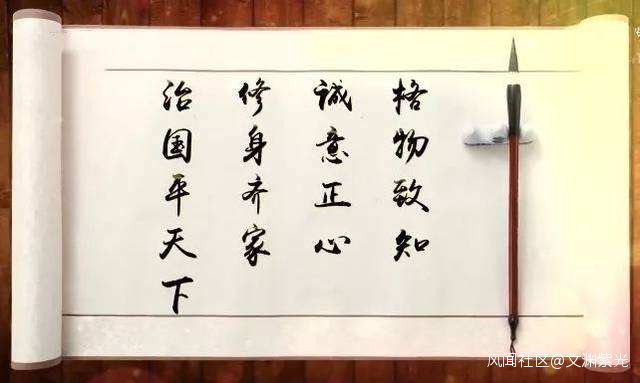 格物致知
诚意正心
修身齐家
治国平天下
风闻社区@文渊紫光